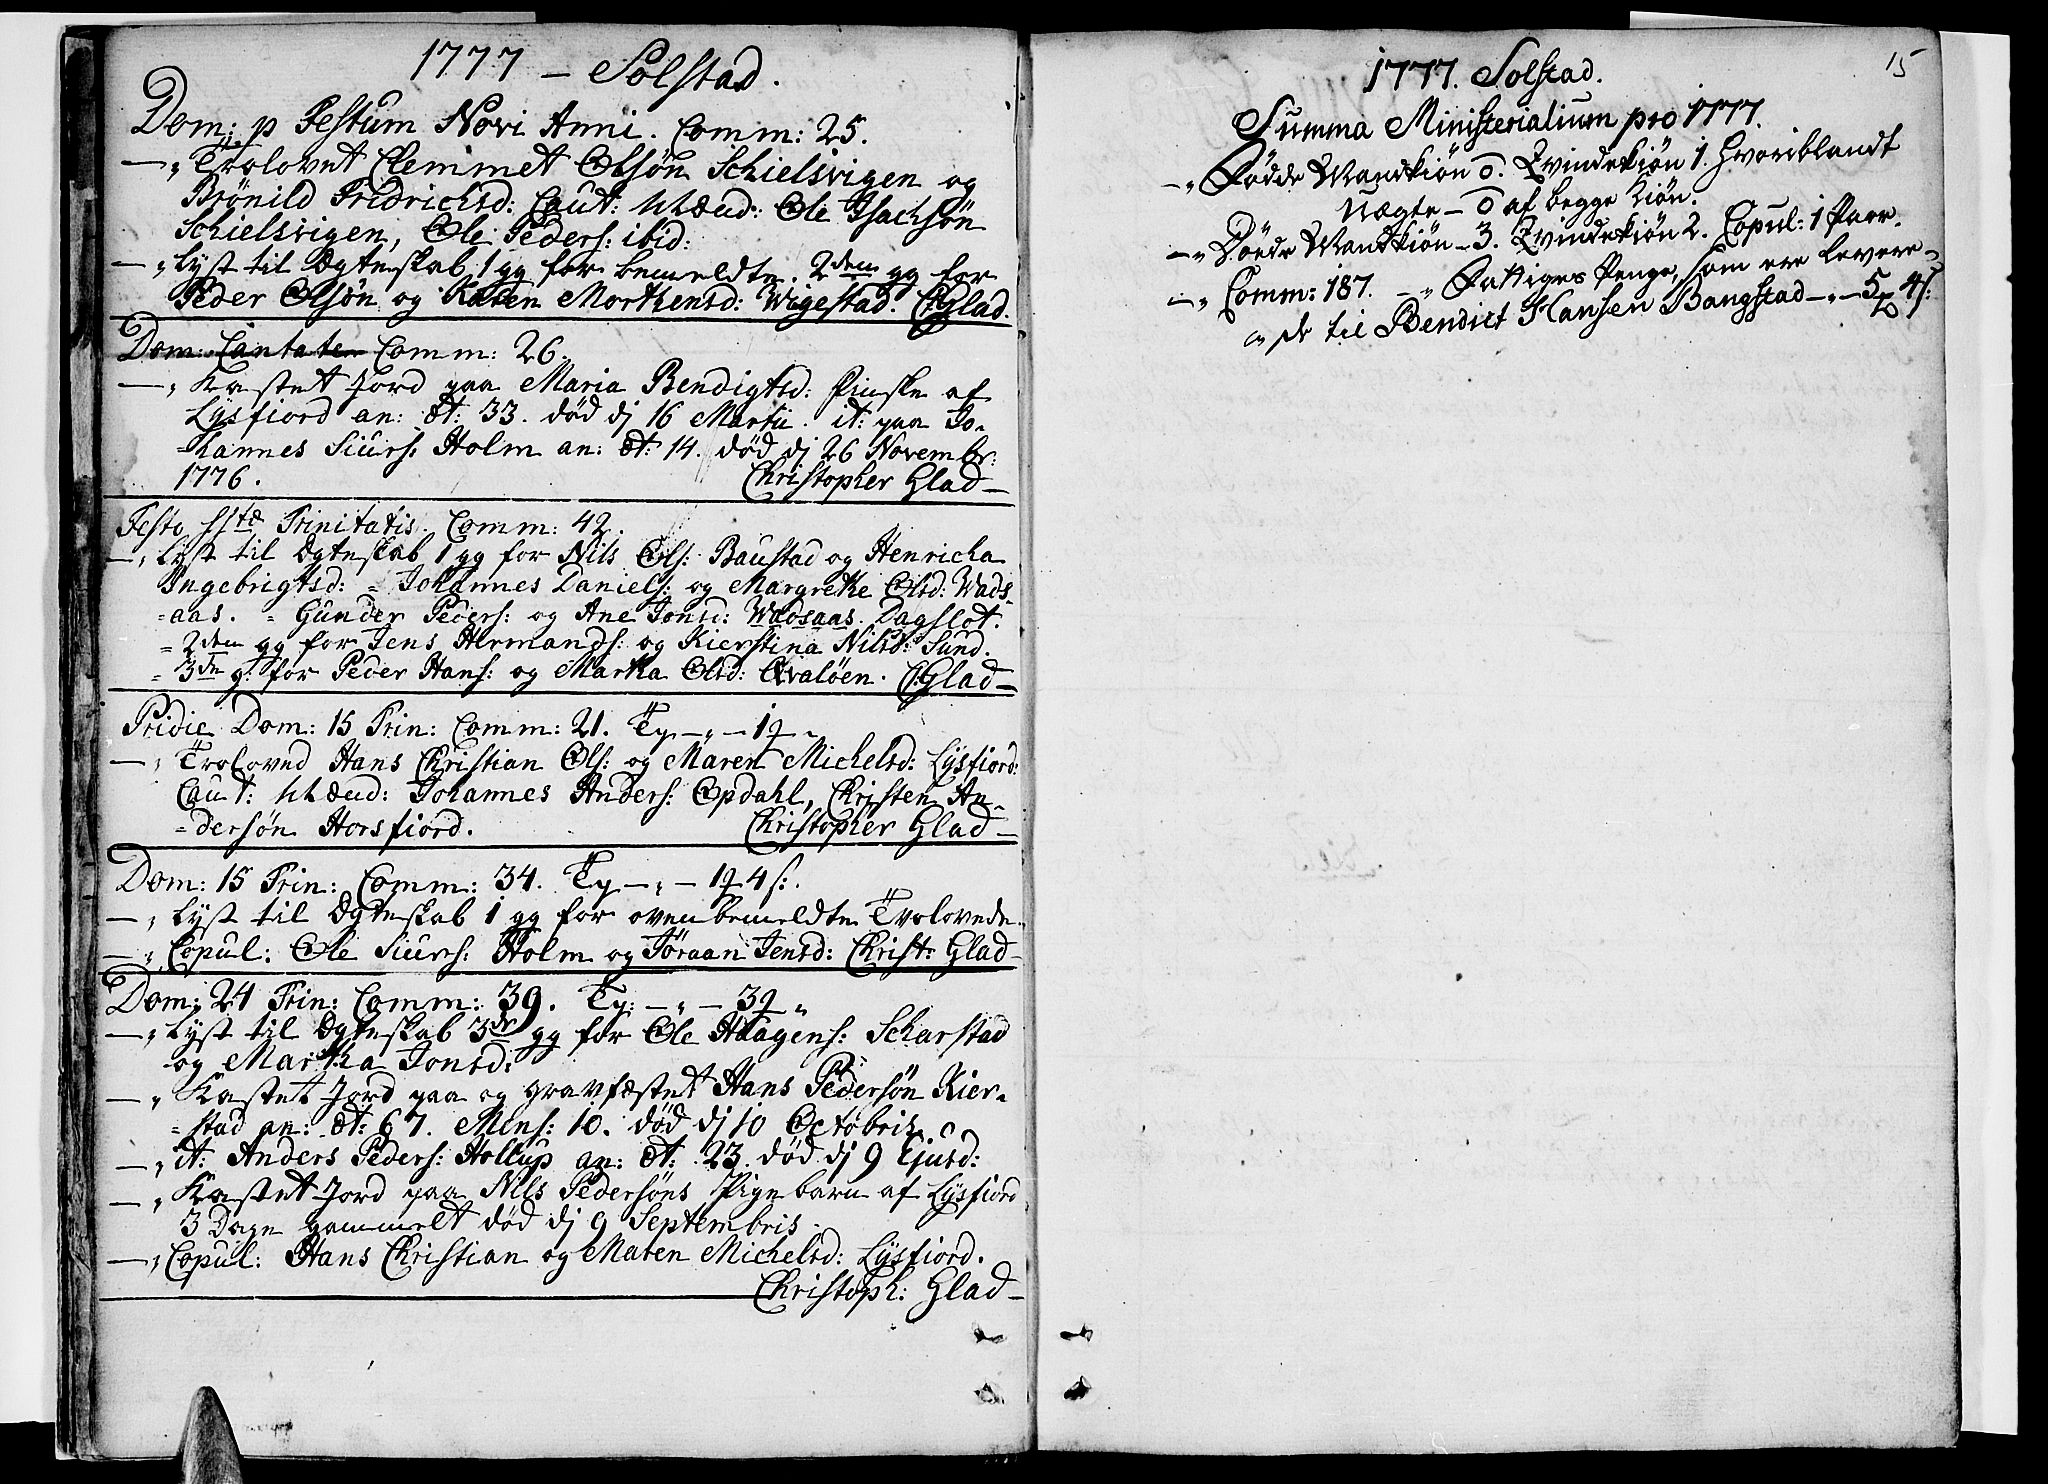 1777 – Solstad.
Dom: p Festum Novi Anni. Comm: 25.
—„ Trolovet Clemmet Olsøn Schielsvigen og
Brönild Fridrichsd: Caut: Mænd: Ole Isachsøn
Schielsvigen, Ole Peders: ibid:
—„ Lyst til Ægteskab 1 gg for bemeldte. 2den gg for
Peder Olsøn og Karen Morthensd: Wigestad. C: Glad.
Dom: Cantate Comm: 26.
—„ Kastet Jord paa Maria Bendigtsd: Piuske af
Lysfiord an: æt: 33. død dj 16 Martii. it: paa Jo-
=hannes Siurs: Holm an: æt: 14. død dj 26 Novembr:
1776. Christopher Glad—
Festo SStæ Trinitatis. Comm: 42.
—„ Lyst til Ægteskab 1 gg for Nils Ols: Baustad og Henricha
Ingebrigtsd: = Johannes Daniels: og Margrethe Olsd: Wads-
=aas. = Gunder Peders: og Ane Jonsd: Wadsaas. Dagslot.
= 2den gg for Jens Hermands: og Kierstina Nilsd: Sund.
= 3de g: for Peder Hans: og Martha Olsd: Qvaløen. C: Glad—
Pridie Dom: 15 Trin: Comm: 21. T —„— 1
—„ Troloved Hans Christian Ols: og Maren Michelsd: Lysfiord:
Caut: Mænd: Johannes Anders: Opdahl, Christen An-
=dersøn Horsfiord. Christopher Glad—
Dom: 15 Trin: Comm: 34. T —„— 1 4 s:.
—„ Lyst til Ægteskab 1 gg for ovenbemeldte Trolovede.
—„ Copul: Ole Siurs: Holm og Jøraan Jensd: Christ: Glad—
Dom: 24 Trin: Comm: 39. T: —„— 3 „
—„ Lyst til Ægteskab 3de gg for Ole Haagens: Scharstad
og Martha Jonsd:
—„ Kastet Jord paa og gravfæstet Hans Pedersøn Kier-
=stad an: æt: 67. Mens: 10. død dj 10 Octobris.
—„ it: Anders Peders: Hollup an: æt: 23. død dj 9 Ejusd:
—„ Kastet Jord paa Nils Pedersøns Pigebarn af Lysfiord
3 Dage gammelt død dj 9 Septembris.
—„ Copul: Hans Christian og Maren Michelsd: Lysfiord.
Christoph: Glad—
15
1777. Solstad.
Summa Ministerialium pro 1777.
—„ Fødde Mandkiøn 0. Qvindekiøn 1. hvoriblandt
Uægte – 0 af begge Kiøn.
—„ Døede Mandkiøn – 3. Qvindekiøn 2. Copul: 1 Parr.
—„ Comm: 187. —„ Fattiges Penge, som ere levere-
„ de til Bendict Hansen Bangstad —„— 5 4 s: